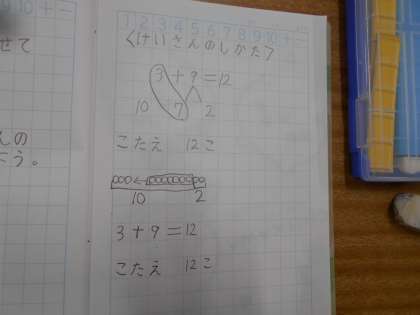 せて
んの
う。
1 2 3 4 5 6 7 8 9 10 + -
〈けいさんのしかた〉
3+9=12
10 7 2
こたえ 12こ
10 2
3+9=12
こたえ 12こ